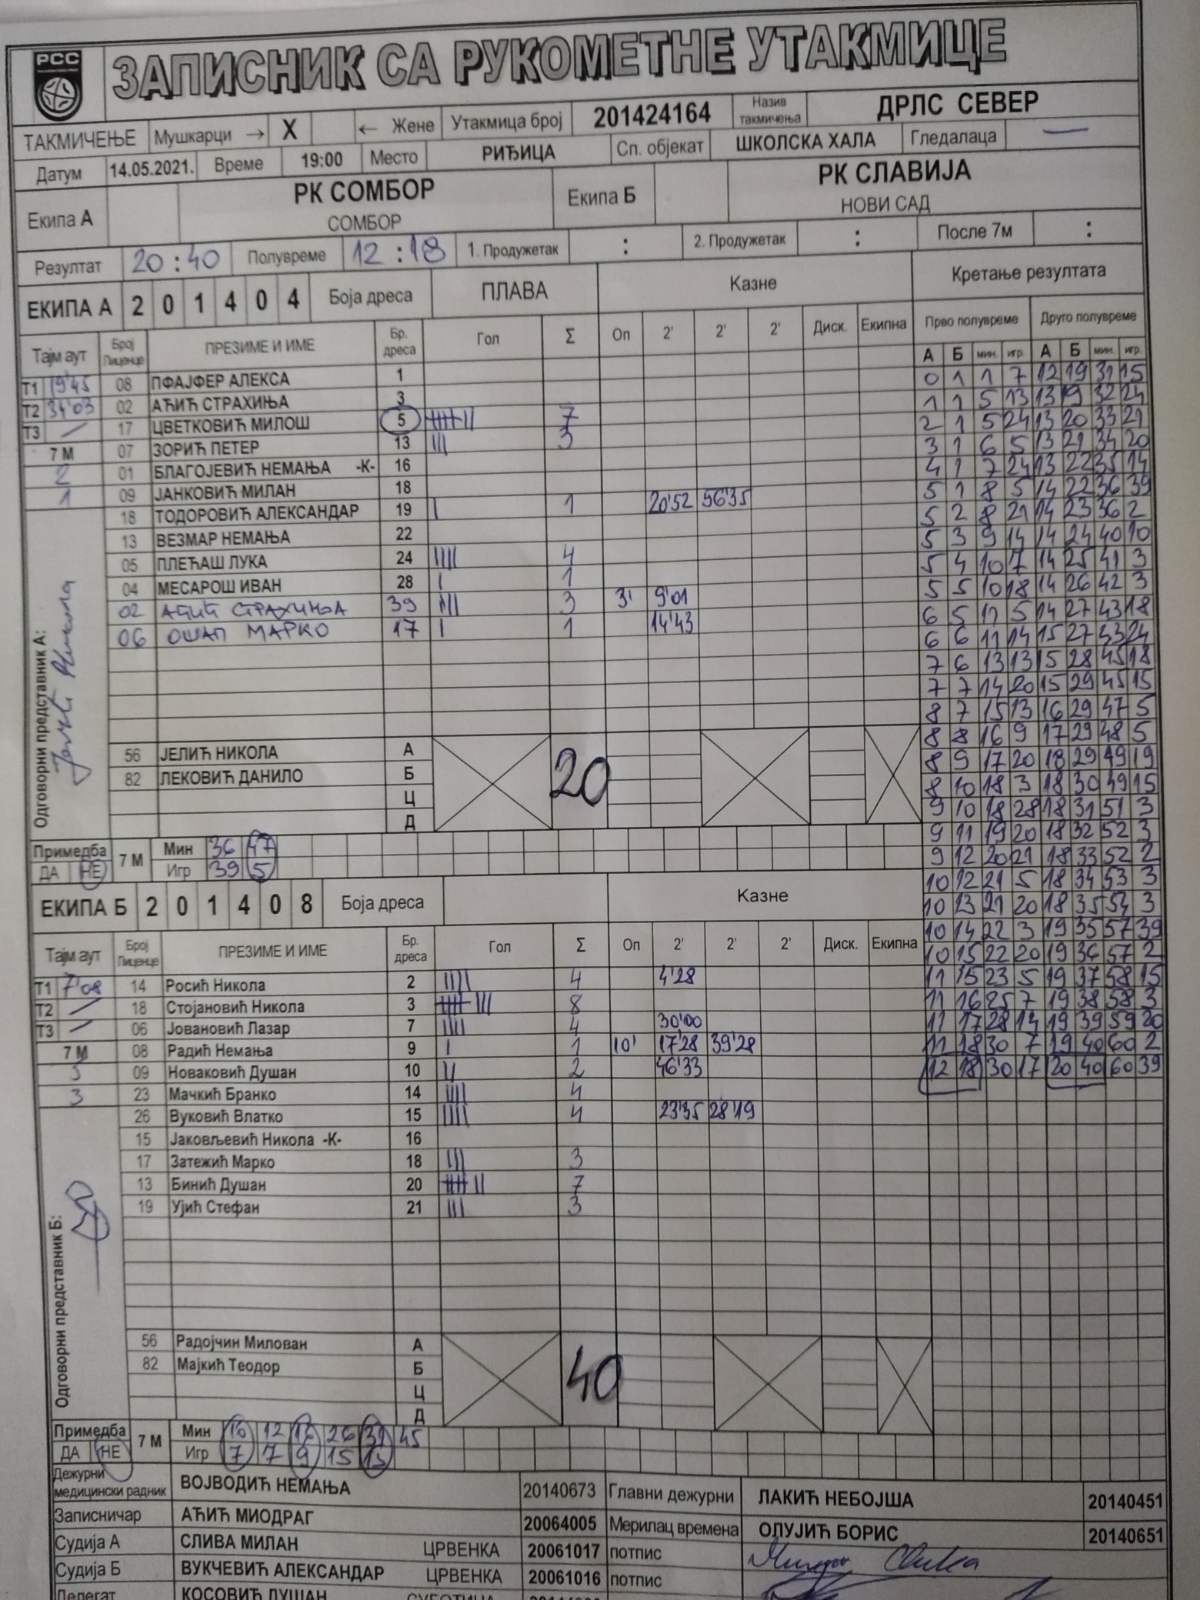 РСС
ЗАПИСНИК СА РУКОМЕТНЕ УТАКМИЦЕ
ТАКМИЧЕЊЕ Мушкарци → X ← Жене Утакмица број 201424164 Назив такмичења ДРЛС СЕВЕР
Датум 14.05.2021. Време 19:00 Место РИЂИЦА Сп. објекат ШКОЛСКА ХАЛА Гледалаца —
Екипа А РК СОМБОР Екипа Б РК СЛАВИЈА
СОМБОР НОВИ САД
Резултат 20:40 Полувреме 12:18 1. Продужетак : 2. Продужетак : После 7м :
ЕКИПА А 2 0 1 4 0 4 Боја дреса ПЛАВА Казне Кретање резултата
Тајм аут Број Лиценце ПРЕЗИМЕ И ИМЕ Бр. дреса Гол Σ Оп 2' 2' 2' Диск. Екипна Прво полувреме Друго полувреме
А Б мин. игр. А Б мин. игр.
Т1 19'45 08 ПФАЈФЕР АЛЕКСА 1 0 1 1 7 12 19 31 15
Т2 34'03 02 АЋИЋ СТРАХИЊА 3 1 1 5 13 13 19 32 24
Т3 — 17 ЦВЕТКОВИЋ МИЛОШ 5 7 2 1 5 24 13 20 33 21
7 М 07 ЗОРИЋ ПЕТЕР 13 3 3 1 6 5 13 21 34 20
2 01 БЛАГОЈЕВИЋ НЕМАЊА -К- 16 4 1 7 24 13 22 35 14
1 09 ЈАНКОВИЋ МИЛАН 18 5 1 8 5 14 22 36 39
18 ТОДОРОВИЋ АЛЕКСАНДАР 19 1 20'52 56'35 5 2 8 21 14 23 36 2
13 ВЕЗМАР НЕМАЊА 22 5 3 9 14 14 24 40 10
05 ПЛЕЋАШ ЛУКА 24 4 5 4 10 7 14 25 41 3
04 МЕСАРОШ ИВАН 28 1 5 5 10 18 14 26 42 3
02 АЋИЋ СТРАХИЊА 39 3 3' 9'01 6 5 11 5 14 27 43 18
06 ОШАП МАРКО 17 1 14'43 6 6 11 14 15 27 43 24
7 6 13 13 15 28 45 18
7 7 14 20 15 29 45 15
8 7 15 13 16 29 47 5
Одговорни представник А:
56 ЈЕЛИЋ НИКОЛА А 20 8 8 16 9 17 29 48 5
82 ЛЕКОВИЋ ДАНИЛО Б 8 9 17 20 18 29 49 19
Ц 8 10 18 3 18 30 49 15
Д 9 10 18 28 18 31 51 3
Примедба 7 М Мин 36 47 9 11 19 20 18 32 52 3
ДА НЕ Игр 39 5 9 12 20 21 18 33 52 2
ЕКИПА Б 2 0 1 4 0 8 Боја дреса Казне 10 12 21 5 18 34 53 3
10 13 21 20 18 35 54 3
Тајм аут Број Лиценце ПРЕЗИМЕ И ИМЕ Бр. дреса Гол Σ Оп 2' 2' 2' Диск. Екипна 10 14 22 3 19 35 57 39
10 15 22 20 19 36 57 2
Т1 7'08 14 Росић Никола 2 4 4'28 11 15 23 5 19 37 58 15
Т2 — 18 Стојановић Никола 3 8 11 16 25 7 19 38 58 3
Т3 — 06 Јовановић Лазар 7 4 30'00 11 17 28 14 19 39 59 20
7 М 08 Радић Немања 9 1 10' 17'28 39'28 11 18 30 7 19 40 60 2
5 09 Новаковић Душан 10 2 46'33 12 18 30 17 20 40 60 39
3 23 Мачкић Бранко 14 4
26 Вуковић Влатко 15 4 23'35 28'19
15 Јаковљевић Никола -К- 16
17 Затежић Марко 18 3
13 Бинић Душан 20 7
19 Ујић Стефан 21 3
Одговорни представник Б:
56 Радојчин Милован А 40
82 Мајкић Теодор Б
Ц
Д
Примедба 7 М Мин 10 12 17 26 31 45
ДА НЕ Игр 7 7 9 15 15
Дежурни медицински радник ВОЈВОДИЋ НЕМАЊА 20140673 Главни дежурни ЛАКИЋ НЕБОЈША 20140451
Записничар АЋИЋ МИОДРАГ 20064005 Мерилац времена ОЛУЈИЋ БОРИС 20140651
Судија А СЛИВА МИЛАН ЦРВЕНКА 20061017 потпис
Судија Б ВУКЧЕВИЋ АЛЕКСАНДАР ЦРВЕНКА 20061016 потпис
Делегат КОСОВИЋ ДУШАН СУБОТИЦА